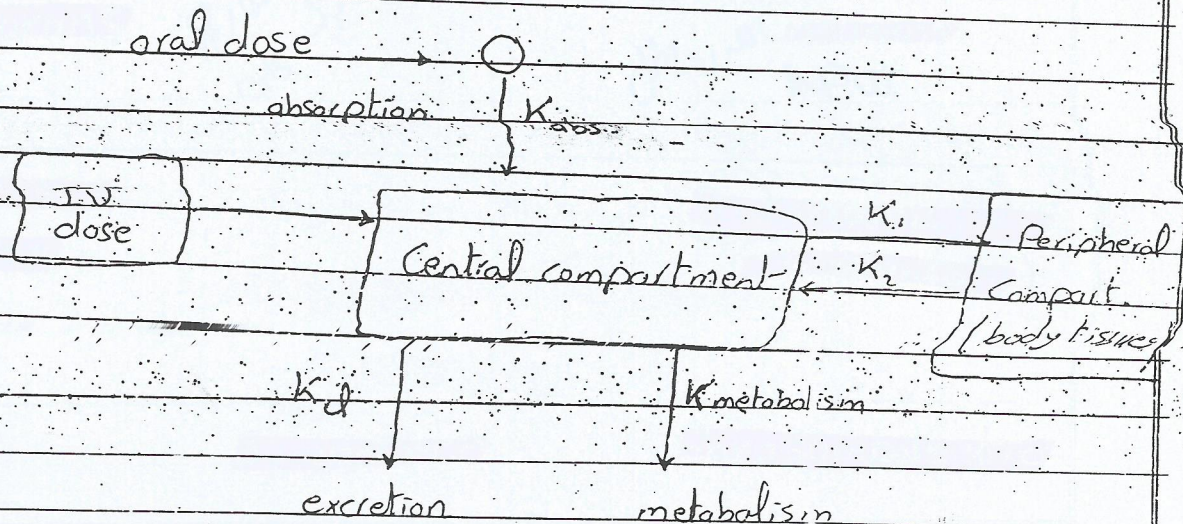 oral dose
absorption
Kabs.
I.V.
dose
Central compartment
K1
K2
Peripheral
Compart.
body tissues
Kel
K metabolism
excretion
metabolism